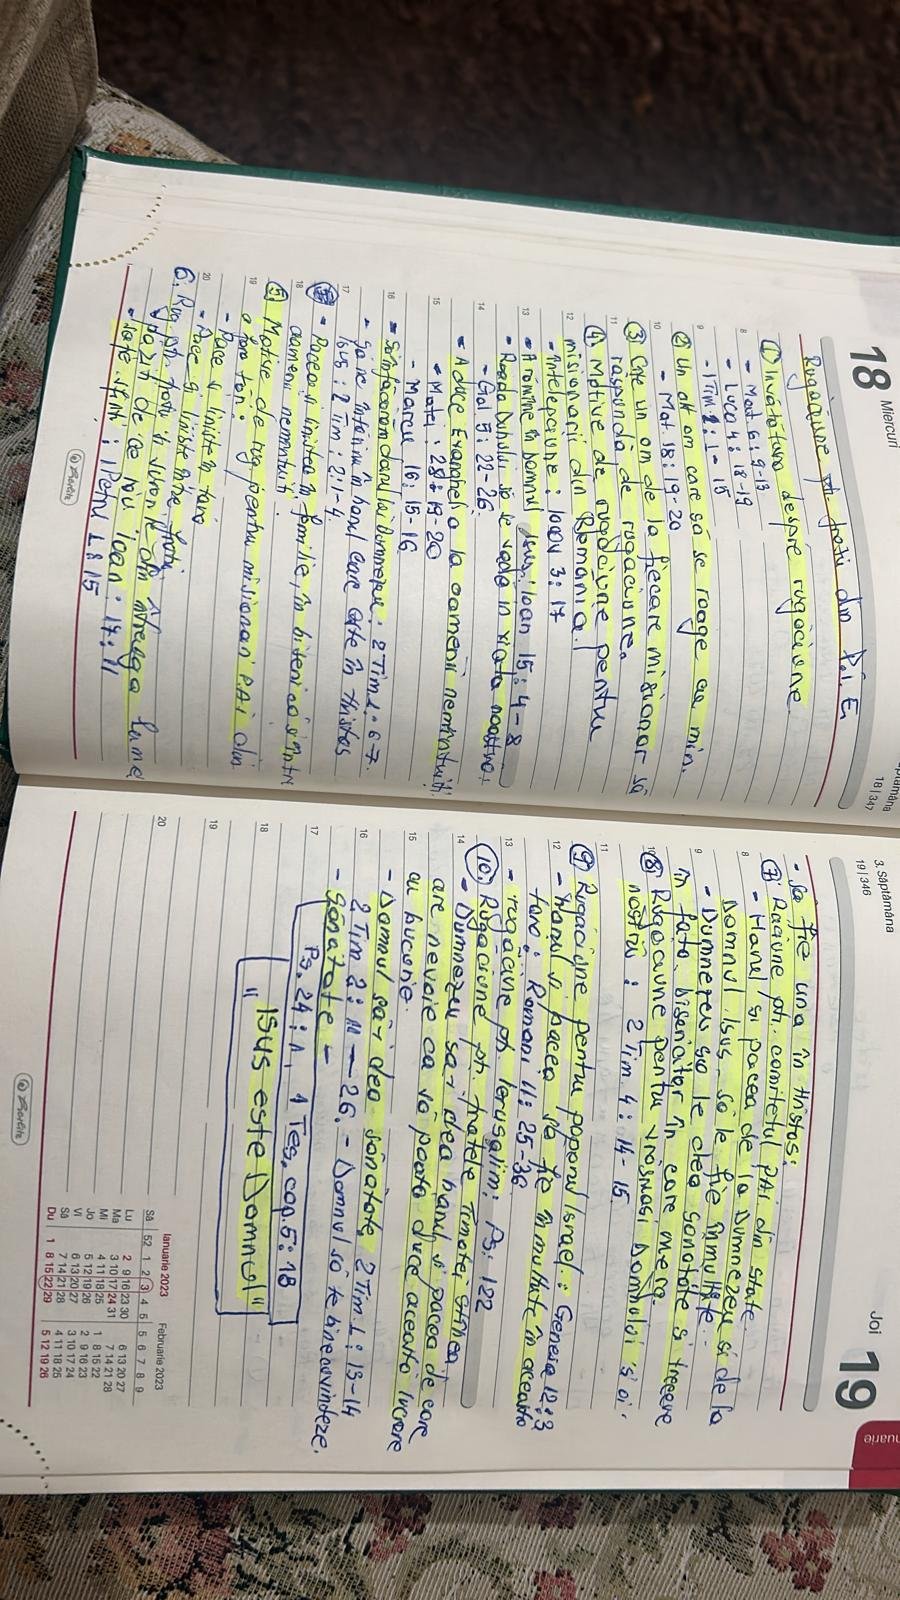 18 Miercuri
Săptămâna
18 | 347
Rugăciune ptr. frații din P.A.E.
① Învățătura despre rugăciune
8
- Mat. 6:9-13
- Luca 4:18-19
9
- 1 Tim 2:1-15
② Un alt om care să se roage cu min.
10
- Mat 18:19-20
③ Câte un om de la fiecare misionar să
11
răspundă de rugăciune.
④ Motive de rugăciune pentru
12
misionarii din România!
- Înțelepciune: Iacov 3:17
13
- A rămâne în Domnul Isus: Ioan 15:4-8
- Roada Duhului să se vadă în viața noastră:
14
- Gal 5:22-26.
- A duce Evanghelia la oamenii nemântuiți:
15
- Matei: 28:19-20
- Marcu 16:15-16
16
- Să înflăcărăm darul lui Dumnezeu: 2 Tim 1:6-7.
- Să ne întărim în harul care este în Hristos
17
Isus: 2 Tim: 2:1-4.
- Pacea și liniștea în familie, în biserică și între
18
oamenii nemântuiți.
⑤ Motive de rug pentru misionari PAI din
19
a țara ta.
- Pace și liniște în țară
20
- Pace și liniște între frați
6. Rug. ptr. frații din întreaga lume
păziți de cel rău Ioan: 17:11
- Fiți sfinți: 1 Petru 1:15
3. Săptămâna
19 | 346
Joi 19
- Să fie una în Hristos:
⑦ Rugăciune ptr. comitetul PAI din state
8
- Harul și pacea de la Dumnezeu și de la
Domnul Isus să le fie înmulțite.
9
- Dumnezeu să le dea sănătate și trecere
în fața bisericilor în care merg.
10
⑧ Rugăciune pentru vrăjmașii Domnului și ai
noștri: 2 Tim. 4:14-15.
11
⑨ Rugăciune pentru poporul Israel: Geneza 12:3
12
- Harul și pacea să fie înmulțite în această
țară: Romani 11:25-36
13
- rugăciune ptr. Ierusalim: Ps: 122
⑩. Rugăciune ptr. fratele Timotei
14
- Dumnezeu să-i dea harul și pacea de care
are nevoie ca să poată duce această lucrare
15
cu bucurie.
- Domnul să-i dea sănătate 2 Tim. 1:13-14
16
2 Tim 2:11-26. - Domnul să te binecuvinteze.
- Sănătate -
17
Ps. 24:1, 1 Tes. cap. 5:18
18
"ISUS este Domnul"
19
20
Ianuarie 2023 Februarie 2023
Să 52 1 2 3 4 5 5 6 7 8 9
Lu 2 9 16 23 30 6 13 20 27
Ma 3 10 17 24 31 7 14 21 28
Mi 4 11 18 25 1 8 15 22
Jo 5 12 19 26 2 9 16 23
Vi 6 13 20 27 3 10 17 24
Sâ 7 14 21 28 4 11 18 25
Du 1 8 15 22 29 5 12 19 26